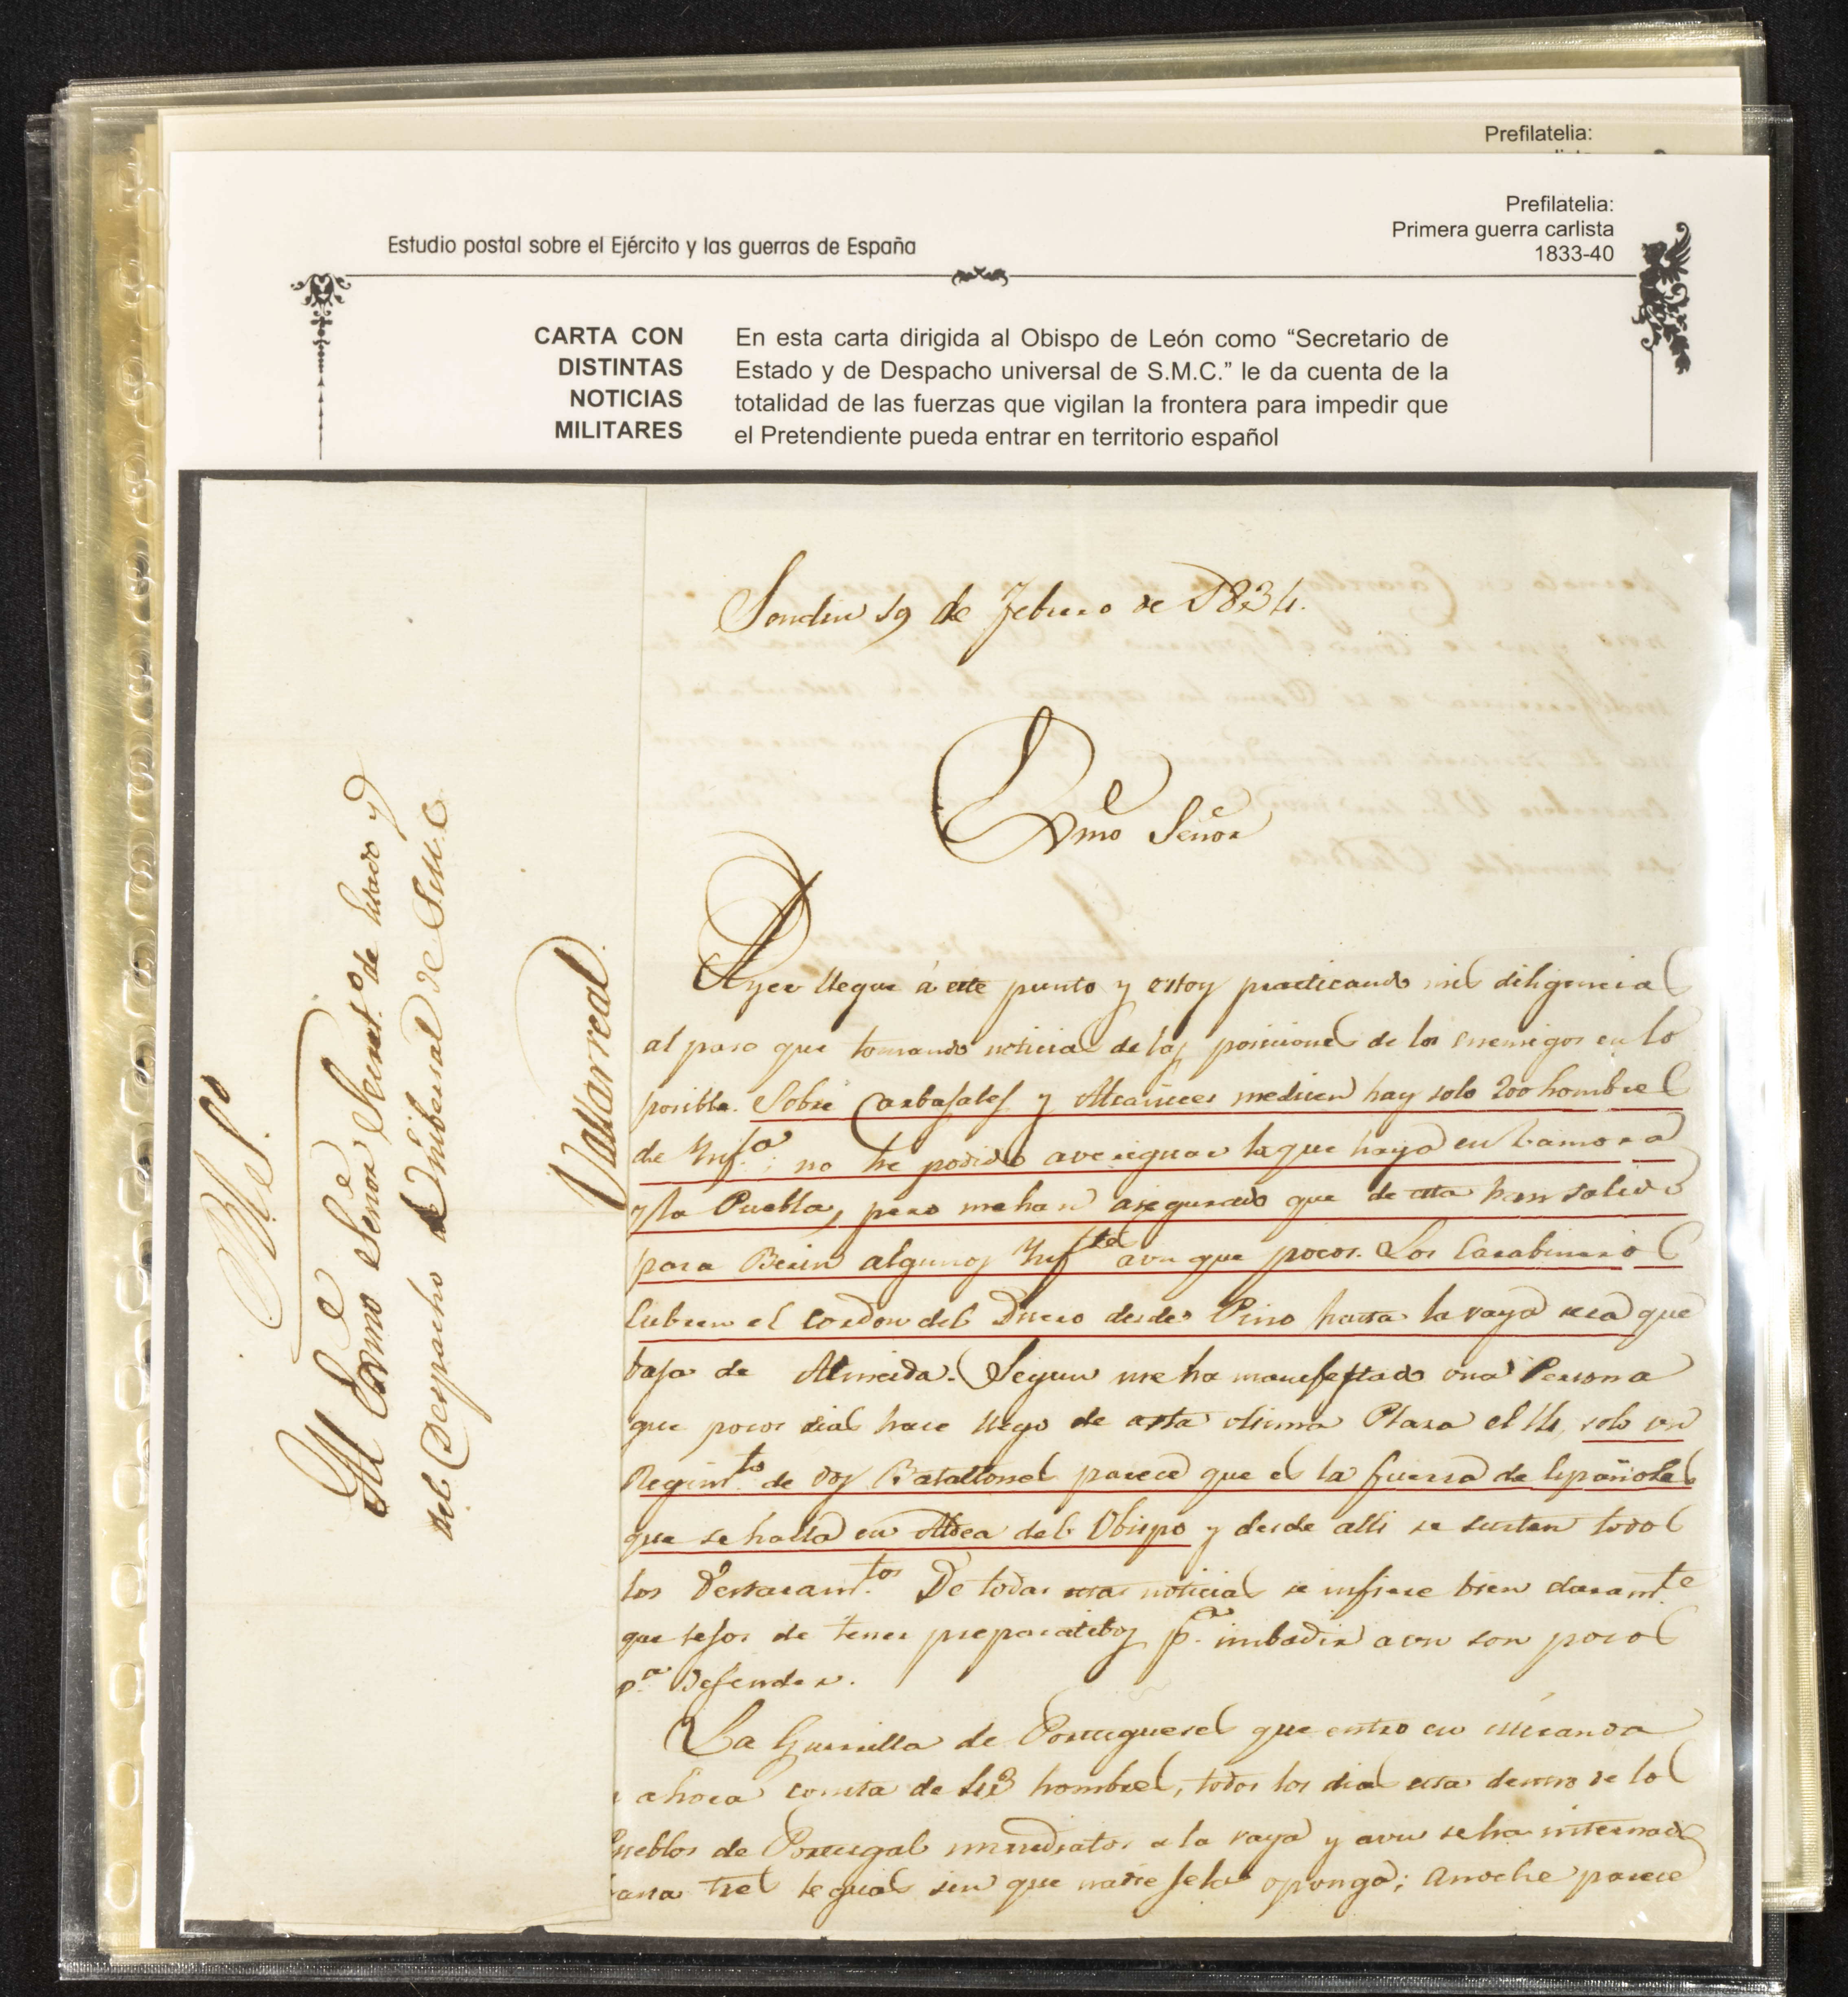 Prefilatelia:
Prefilatelia:
Primera guerra carlista
1833-40
Estudio postal sobre el Ejército y las guerras de España
CARTA CON
DISTINTAS
NOTICIAS
MILITARES
En esta carta dirigida al Obispo de León como “Secretario de
Estado y de Despacho universal de S.M.C.” le da cuenta de la
totalidad de las fuerzas que vigilan la frontera para impedir que
el Pretendiente pueda entrar en territorio español
Sendin 19 de Febrero de 1834.
Exmo Señor
Ayer llegue á este punto y estoy practicando mil diligencias
al paso que tomando noticias de las posiciones de los enemigos en lo
posible. Sobre Carbajales y Alcañices medicen hay solo 200 hombres
de Ynf.a; no he podido averiguar lo que haya en Zamora
y la Puebla, pero me han asegurado que de esta han salido
para Berin algunos Ynf.tes aunque pocos. Los Carabineros
Cubren el cordon del Duero desde Pino hasta la raya seca que
baja de Almeida. Segun me ha manifestado una Persona
que pocos dias hace llego de esta ultima Plaza el 14, solo un
Regim.to de dos Batallones parece que es la fuerza de Españoles
que se halla en Aldea del Obispo y desde alli se surten todos
los Destacam.tos De todas estas noticias se infiere bien claram.te
que lejos de tener preparatibos p.a imbadir aun son pocos
p.a Defender.
La Guerrilla de Portugueses que entro en Miranda
ahora consta de hombres, todos los dias esta dentro de los
Pueblos de Portugal inmediatos a la raya y aun se ha internado
hasta tres leguas sin que nadie se la oponga; anoche parece
R.l S.o
Al Exmo Señor Secret.o de Estado y
del Despacho Unibersal de S.M.C.
Villarreal